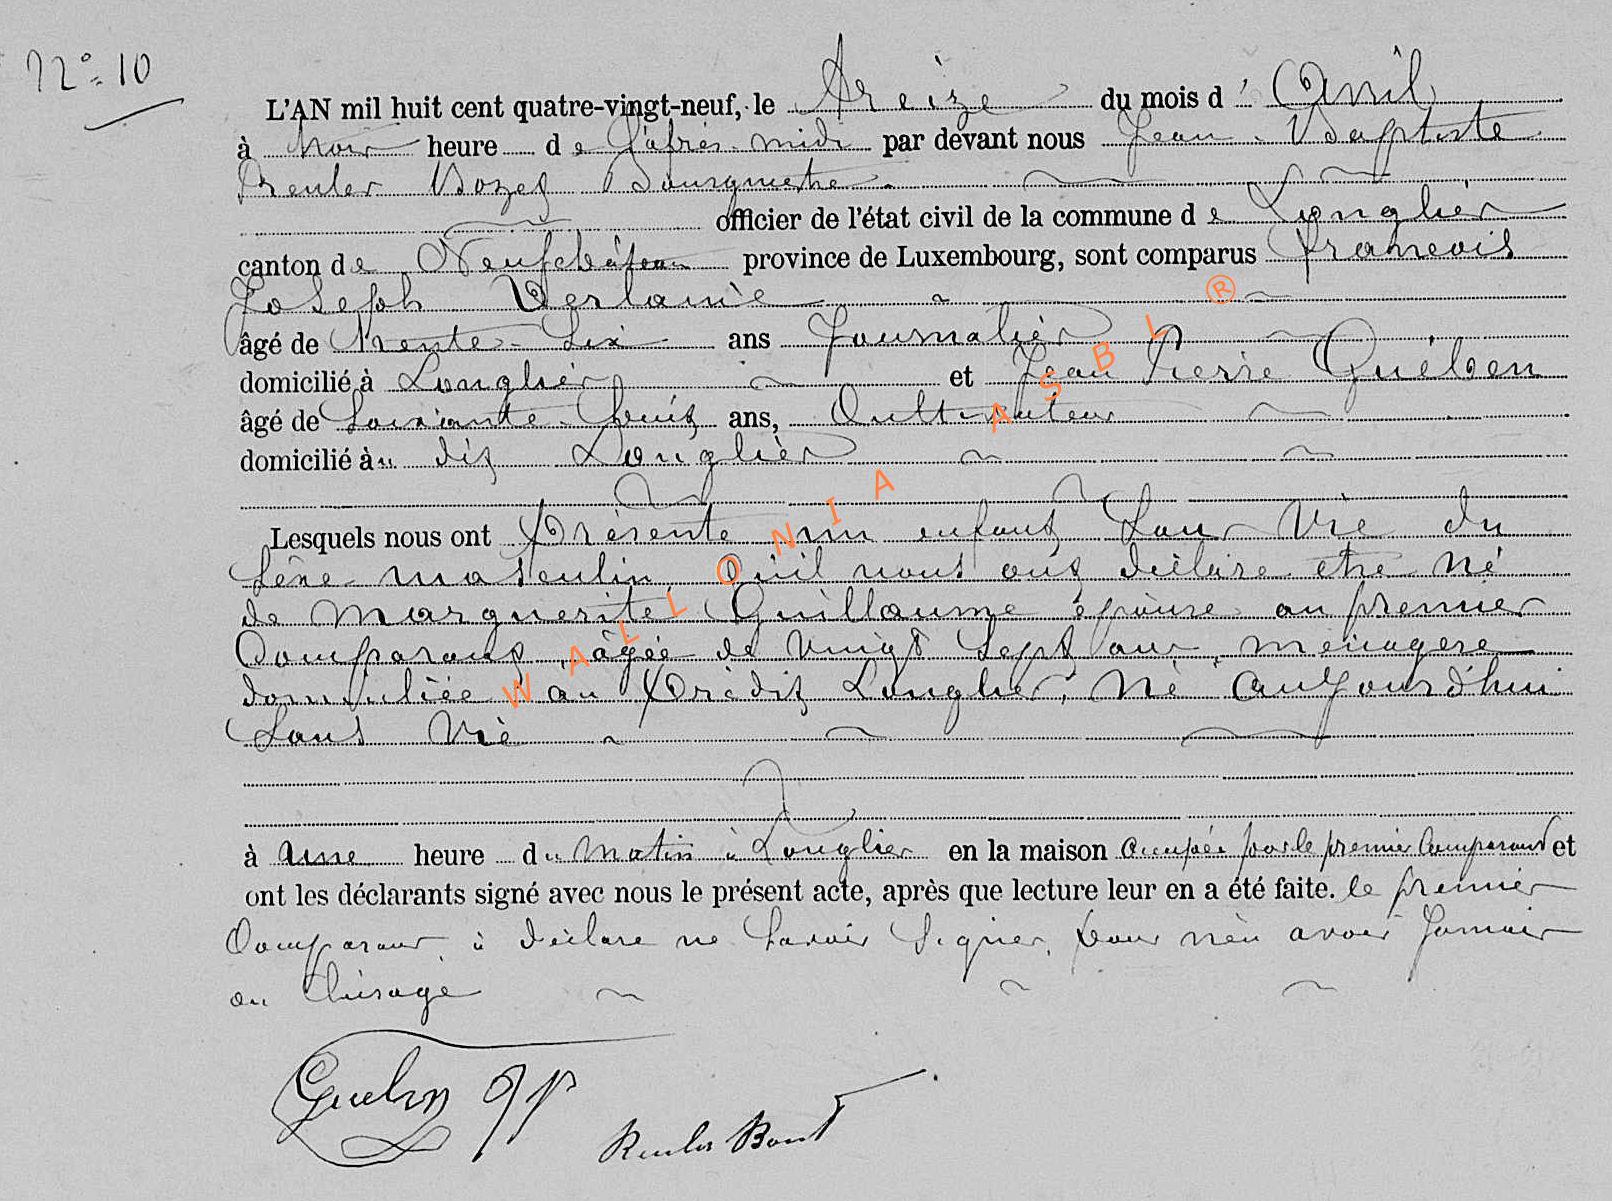 N° 10
L'AN mil huit cent quatre-vingt-neuf, le treize du mois d' Avril
à trois heure de l'après-midi par devant nous Jean-Baptiste
Reuler Bourgmestre
officier de l'état civil de la commune de Longlier
canton de Neufchâteau province de Luxembourg, sont comparus Francois
Joseph Verlaine
âgé de trente-six ans Journalier
domicilié à Longlier et Jean Pierre Guében
âgé de Soixante-huit ans, Cultivateur
domicilié au dit Longlier
Lesquels nous ont présenté un enfant sans vie du
sexe masculin qu'il nous ont déclaré etre né
de Marguerite Guillaume épouse au premier
Comparant, âgée de vingt sept ans, ménagere
domiciliée au prédit Longlier, né aujourd'hui
sans vie
à une heure du matin à Longlier en la maison occupée par le premier Comparant et
ont les déclarants signé avec nous le présent acte, après que lecture leur en a été faite. le premier
Comparant à déclaré ne savoir signer, pour n'en avoir Jamais
eu l'usage
Gueben JP
Reuler
WALLONIA ASBL ®